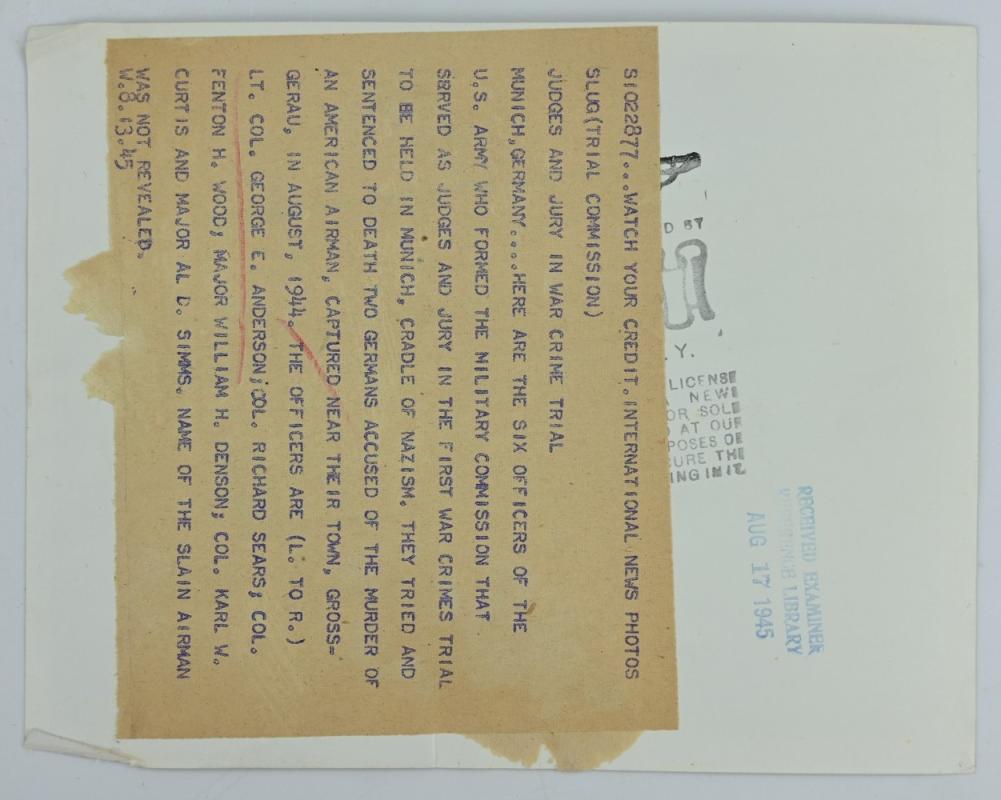 S1022877...WATCH YOUR CREDIT.INTERNATIONAL NEWS PHOTOS
SLUG(TRIAL COMMISSION)
JUDGES AND JURY IN WAR CRIME TRIAL
MUNICH,GERMANY....HERE ARE THE SIX OFFICERS OF THE
U.S. ARMY WHO FORMED THE MILITARY COMMISSION THAT
SERVED AS JUDGES AND JURY IN THE FIRST WAR CRIMES TRIAL
TO BE HELD IN MUNICH, CRADLE OF NAZISM. THEY TRIED AND
SENTENCED TO DEATH TWO GERMANS ACCUSED OF THE MURDER OF
AN AMERICAN AIRMAN, CAPTURED NEAR THEIR TOWN, GROSS=
GERAU, IN AUGUST, 1944. THE OFFICERS ARE (L. TO R.)
LT. COL. GEORGE E. ANDERSON;COL. RICHARD SEARS; COL.
FENTON H. WOOD; MAJOR WILLIAM H. DENSON; COL. KARL W.
CURTIS AND MAJOR AL D. SIMMS. NAME OF THE SLAIN AIRMAN
WAS NOT REVEALED.
W.8.13.45
D BY
Y.
LICENSE
NEWS
OR SOLD
AT OUR
POSES OF
URE THE
ING IN IT.
RECEIVED EXAMINER
REFERENCE LIBRARY
AUG 17 1945